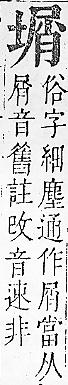 俗字細塵通作屑當从
屑音舊註攺音速非